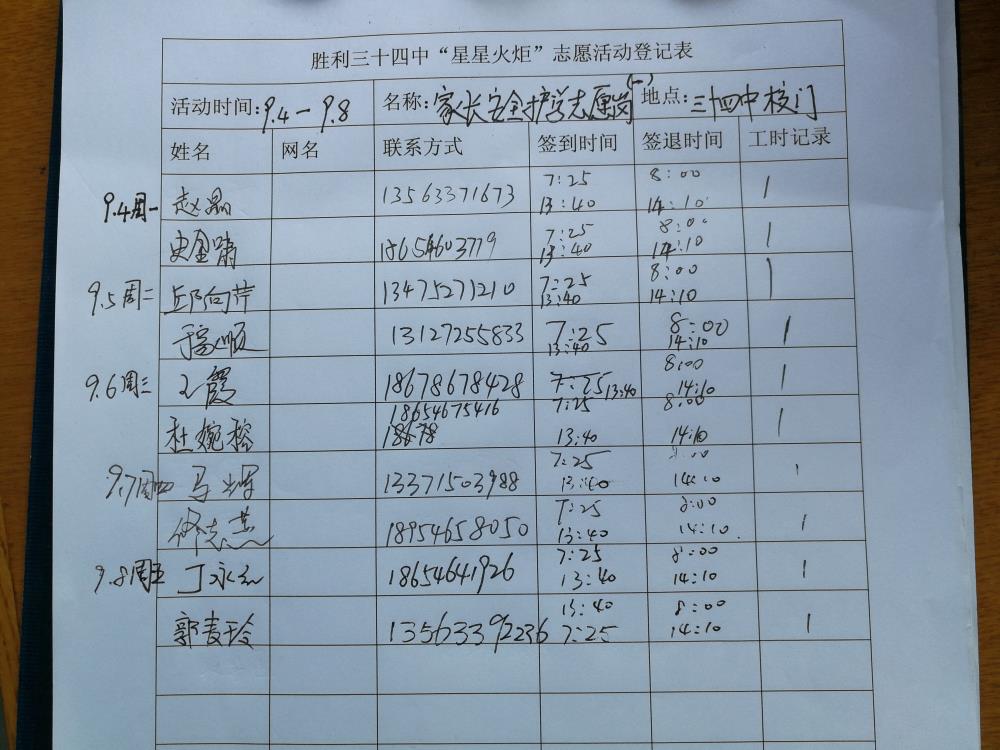 胜利三十四中“星星火炬”志愿活动登记表
活动时间:9.4-9.8 名称:家长安全护学志愿岗(一) 地点:三十四中校门
姓名 网名 联系方式 签到时间 签退时间 工时记录
9.4周一 赵晶 13563371673 7:25 13:40 8:00 14:10 1
史金啸 18654603779 7:25 13:40 8:00 14:10 1
9.5周二 邱向芹 13475271210 7:25 13:40 8:00 14:10 1
于富顺 13127255833 7:25 13:40 8:00 14:10 1
9.6周三 王霞 18678678428 7:25 13:40 8:00 14:10 1
杜婉榕 18654675416 7:25 13:40 8:00 14:10 1
9.7周四 马 13371503988 7:25 13:40 8:00 14:10 1
修志燕 18954658050 7:25 13:40 8:00 14:10 1
9.8周五 丁永 18654641926 7:25 13:40 8:00 14:10 1
郭麦玲 13563392236 13:40 7:25 8:00 14:10 1